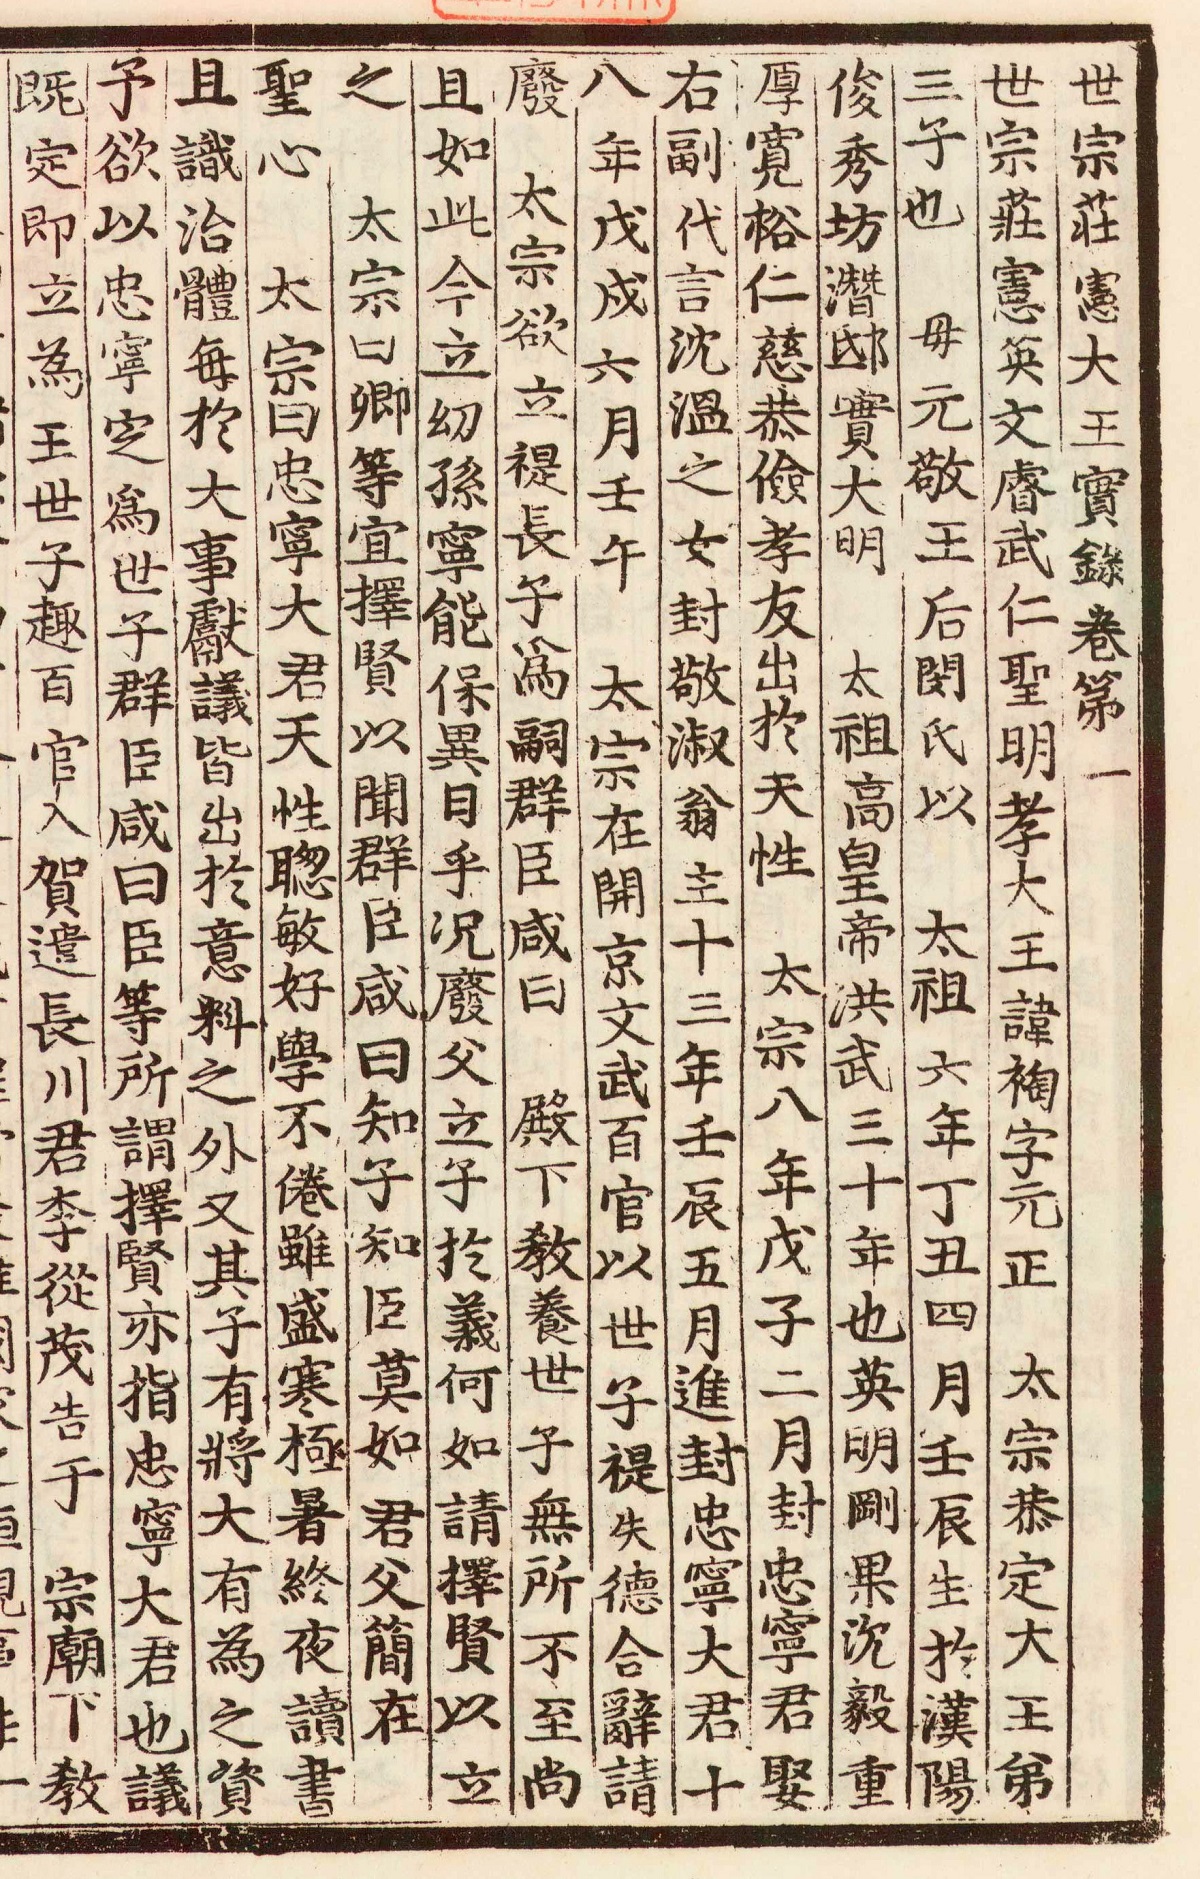 世宗莊憲大王實錄卷第一
世宗莊憲英文睿武仁聖明孝大王諱祹字元正　太宗恭定大王第
三子也　母元敬王后閔氏以　太祖六年丁丑四月壬辰生於漢陽
俊秀坊潛邸實大明　太祖高皇帝洪武三十年也英明剛果沈毅重
厚寬裕仁慈恭儉孝友出於天性　太宗八年戊子二月封忠寧君娶
右副代言沈溫之女封敬淑翁主十三年壬辰五月進封忠寧大君十
八年戊戌六月壬午　太宗在開京文武百官以世子禔失德合辭請
廢　太宗欲立禔長子爲嗣群臣咸曰　殿下敎養世子無所不至尙
且如此今立幼孫寧能保異日乎況廢父立子於義何如請擇賢以立
之　太宗曰卿等宜擇賢以聞群臣咸曰知子知臣莫如君父簡在
聖心　太宗曰忠寧大君天性聰敏好學不倦雖盛寒極暑終夜讀書
且識治體每於大事獻議皆出於意料之外又其子有將大有為之資
予欲以忠寧定爲世子群臣咸曰臣等所謂擇賢亦指忠寧大君也議
既定即立為王世子趣百官入賀遣長川君李從茂告于　宗廟下敎